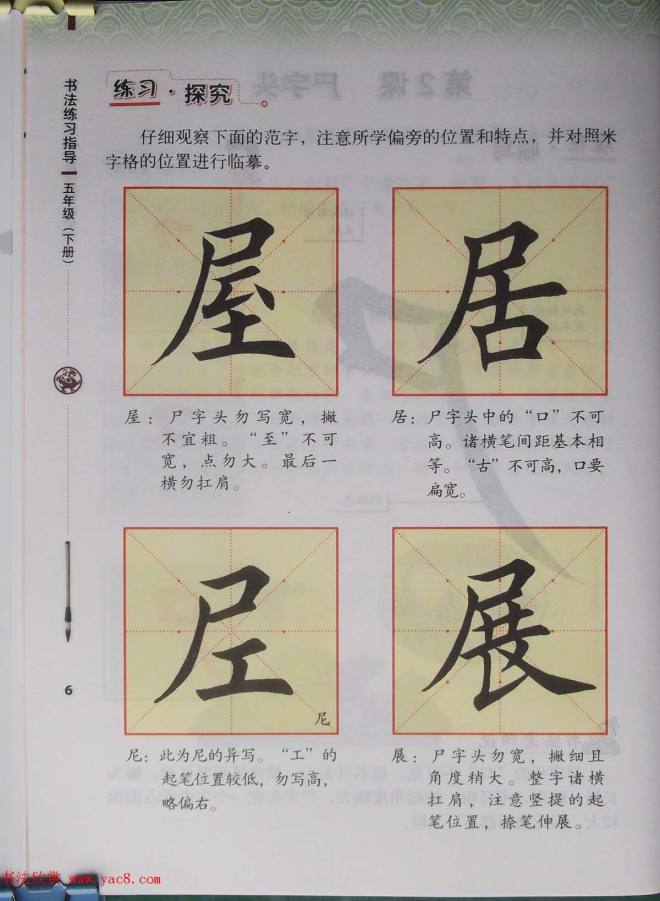 练习·探究
仔细观察下面的范字，注意所学偏旁的位置和特点，并对照米
字格的位置进行临摹。
书法练习指导
五年级（下册）
屋
居
屋：尸字头勿写宽，撇
不宜粗。“至”不可
宽，点勿大。最后一
横勿扛肩。
居：尸字头中的“口”不可
高。诸横笔间距基本相
等。“古”不可高，口要
扁宽。
尼
展
尼：此为尼的异写。“工”的
起笔位置较低，勿写高，
略偏右。
展：尸字头勿宽，撇细且
角度稍大。整字诸横
扛肩，注意竖提的起
笔位置，捺笔伸展。
6
书法欣赏 www.yac8.com
第2课 尸字头